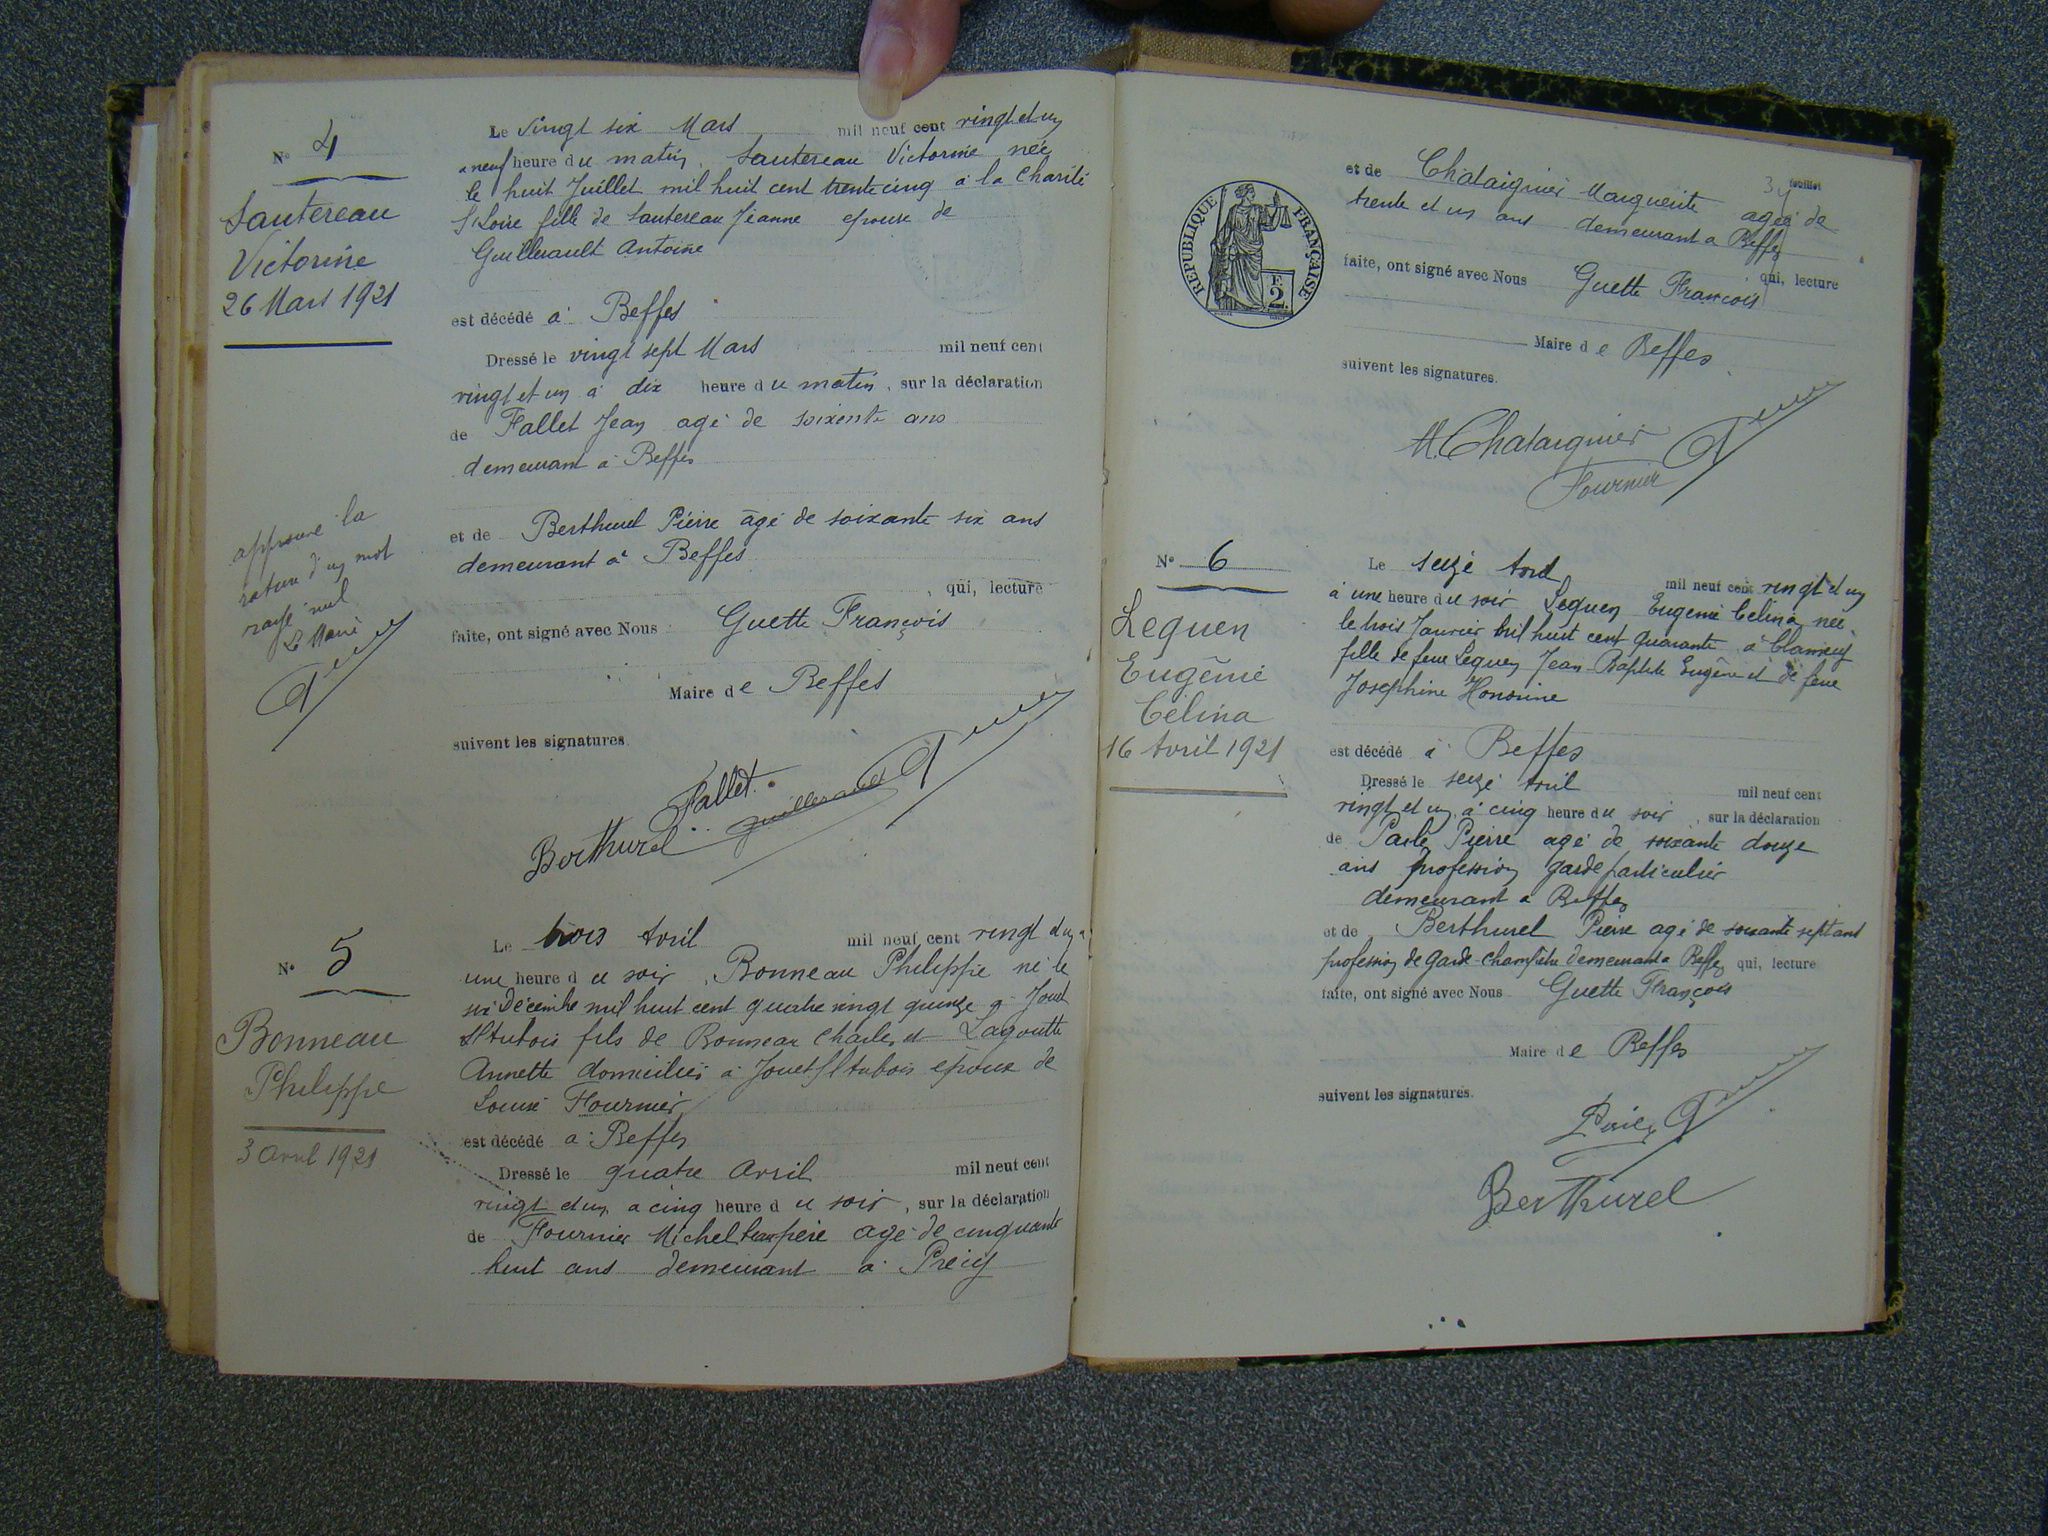 N° 4
Sautereau
Victorine
26 Mars 1921
Le vingt six Mars mil neuf cent vingt et un
a neuf heure du matin, Sautereau Victorine née
le huit Juillet mil huit cent trente cinq à la Charité
S/Loire fille de Sautereau Jeanne epouse de
Guillerault Antoine
est décédé à Beffes
Dressé le vingt sept Mars mil neuf cent
vingt et un à dix heure du matin, sur la déclaration
de Fallet Jean agé de soixante ans
demeurant à Beffes
et de Berthurel Pierre âgé de soixante six ans
demeurant à Beffes
, qui, lecture
faite, ont signé avec Nous Guette François
Maire de Beffes
suivent les signatures
approuvé la
rature d'un mot
rayé nul
Le Maire
Fallet
Berthurel Guillerault
N° 5
Bonneau
Philippe
3 Avril 1921
Le trois Avril mil neuf cent vingt et un a
une heure du soir, Bonneau Philippe né le
six Décembre mil huit cent quatre vingt quinze a Jouet
s/l'Aubois fils de Bonneau Charles et Lagoutte
Annette domiciliés à Jouet s/l'Aubois époux de
Louise Fournier
est décédé a Beffes
Dressé le quatre Avril mil neuf cent
vingt et un, a cinq heure du soir, sur la déclaration
de Fournier Michel beau père agé de cinquante
huit ans demeurant à Précy
3 feuillet
RÉPUBLIQUE FRANÇAISE
2 F.
et de Chataignier Marguerite agée de
trente et un ans demeurant a Beffes
qui, lecture
faite, ont signé avec Nous Guette François
Maire de Beffes
suivent les signatures.
M. Chataignier
Fournier
N° 6
Lequen
Eugénie
Celina
16 Avril 1921
Le seize Avril mil neuf cent vingt et un
à une heure du soir Lequen Eugenie Celina née
le trois Janvier mil huit cent quarante à Clamecy
fille de feu Lequen Jean Baptiste Eugène et de feue
Josephine Honorine
est décédé à Beffes
Dressé le seize Avril mil neuf cent
vingt et un, à cinq heure du soir, sur la déclaration
de Pierre agé de soixante douze
ans profession garde particulier
demeurant a Beffes
et de Berthurel Pierre agé de soixante sept ans
profession de garde-champêtre demeurant a Beffes qui, lecture
faite, ont signé avec Nous Guette François
Maire de Beffes
suivent les signatures.
Berthurel